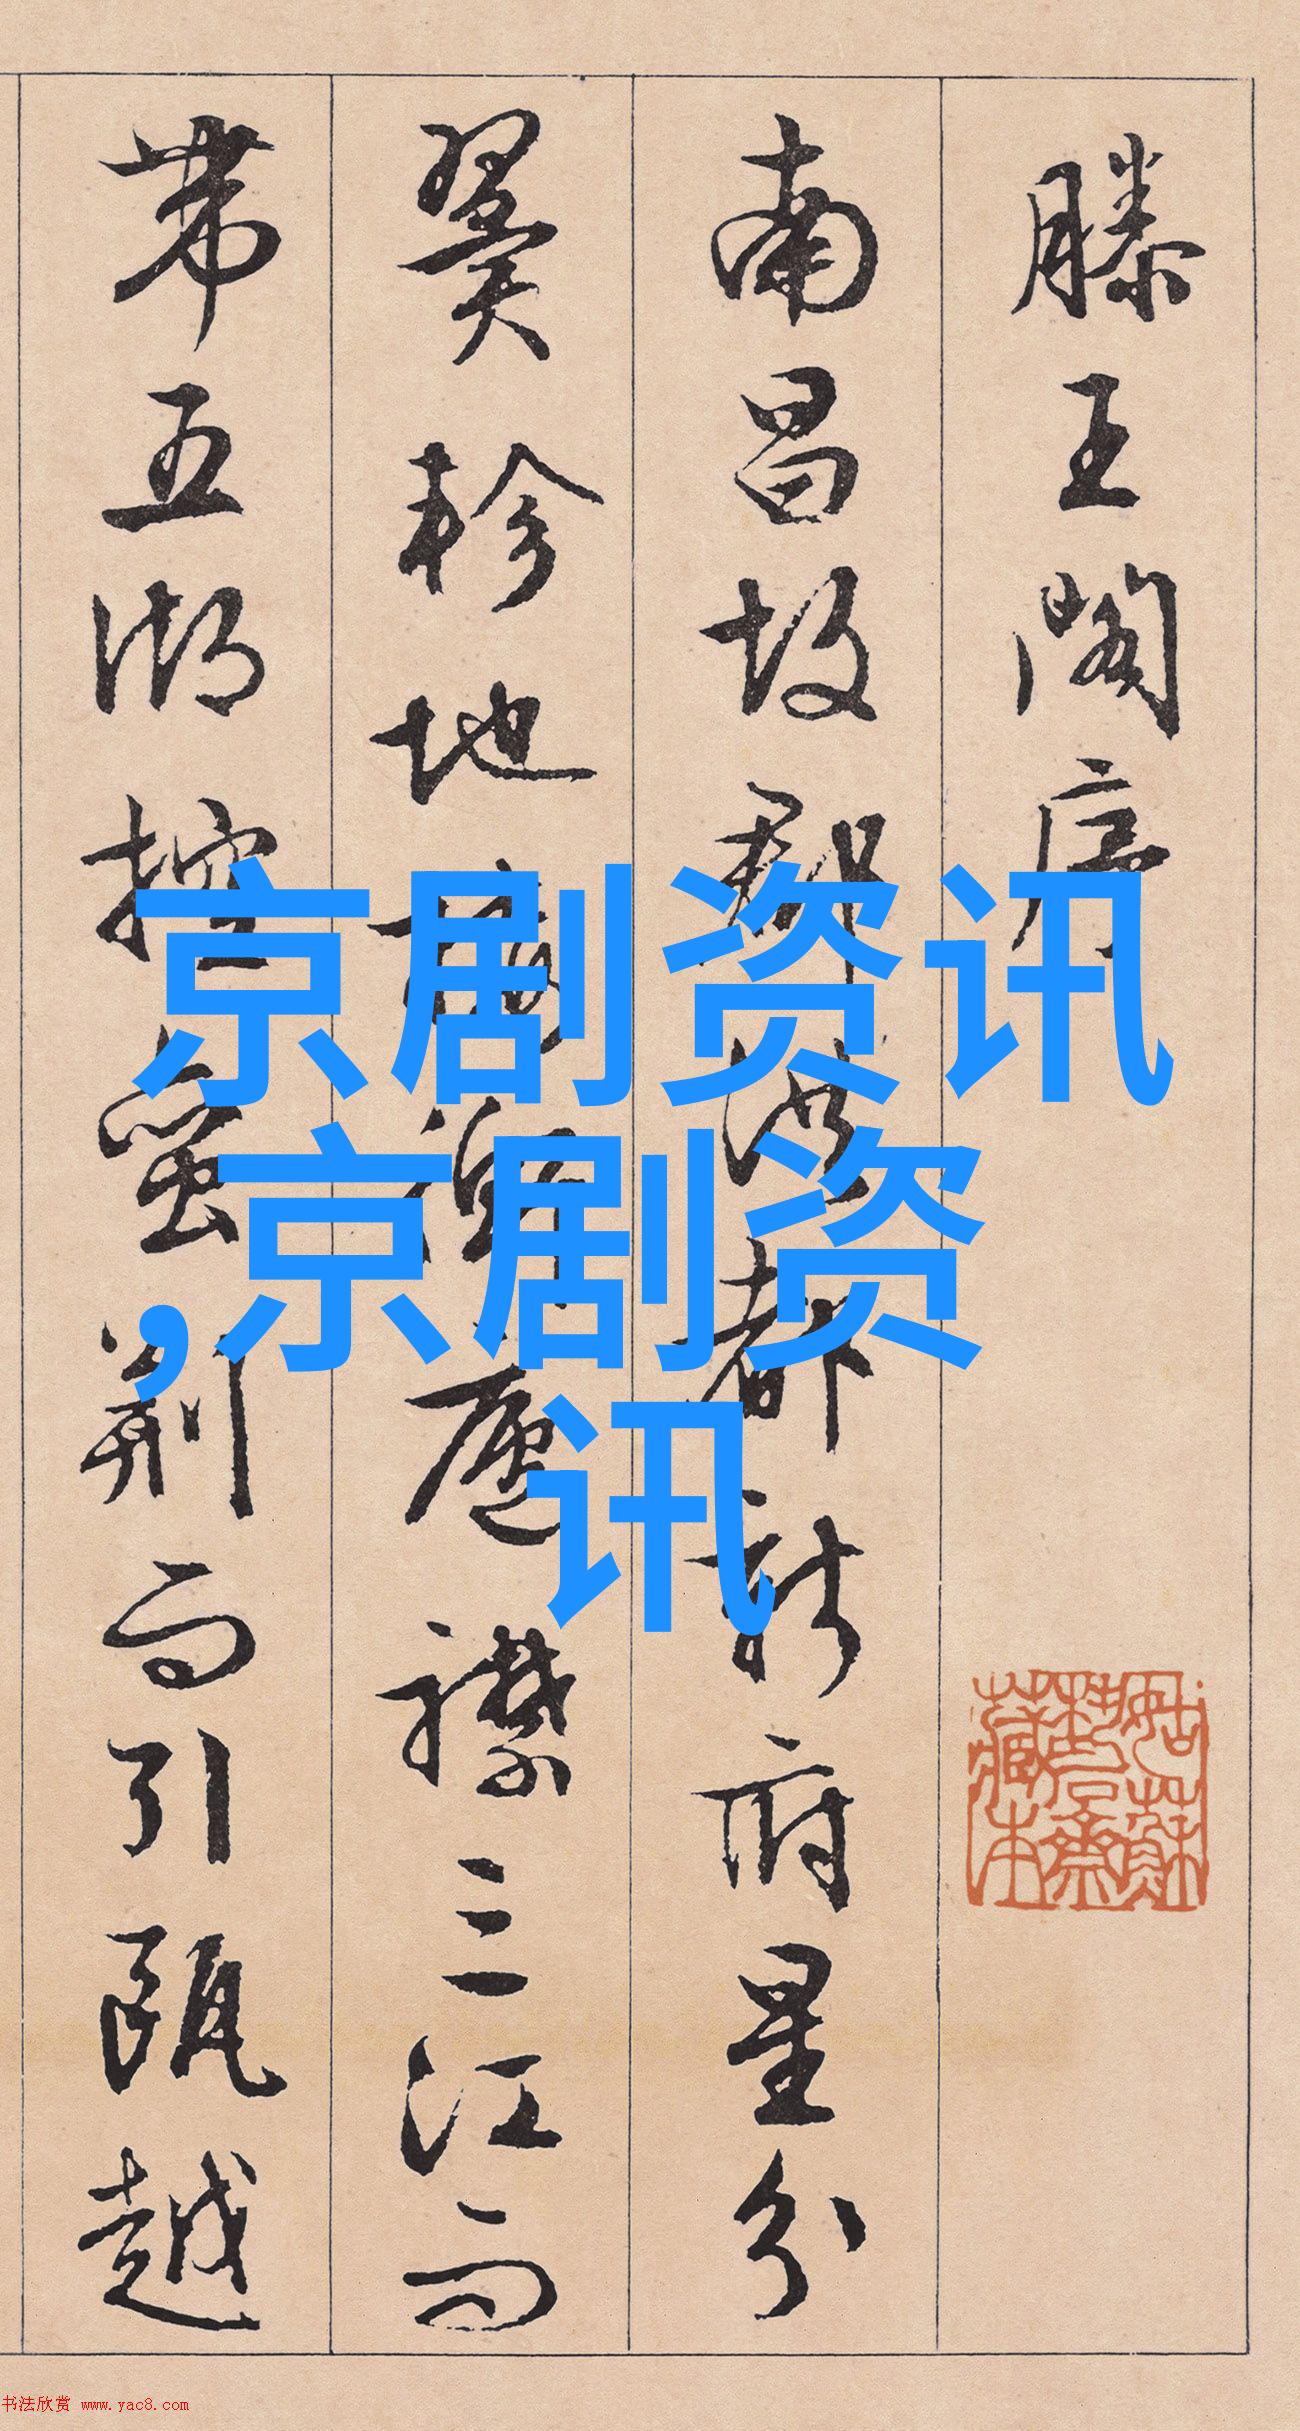 滕王阁序
南昌故郡洪都新府星分
翼轸地接衡庐襟三江而
带五湖控蛮荆而引瓯越
京剧资讯
,京剧资
讯
姑苏
斋
藏本
书法欣赏 www.yac8.com